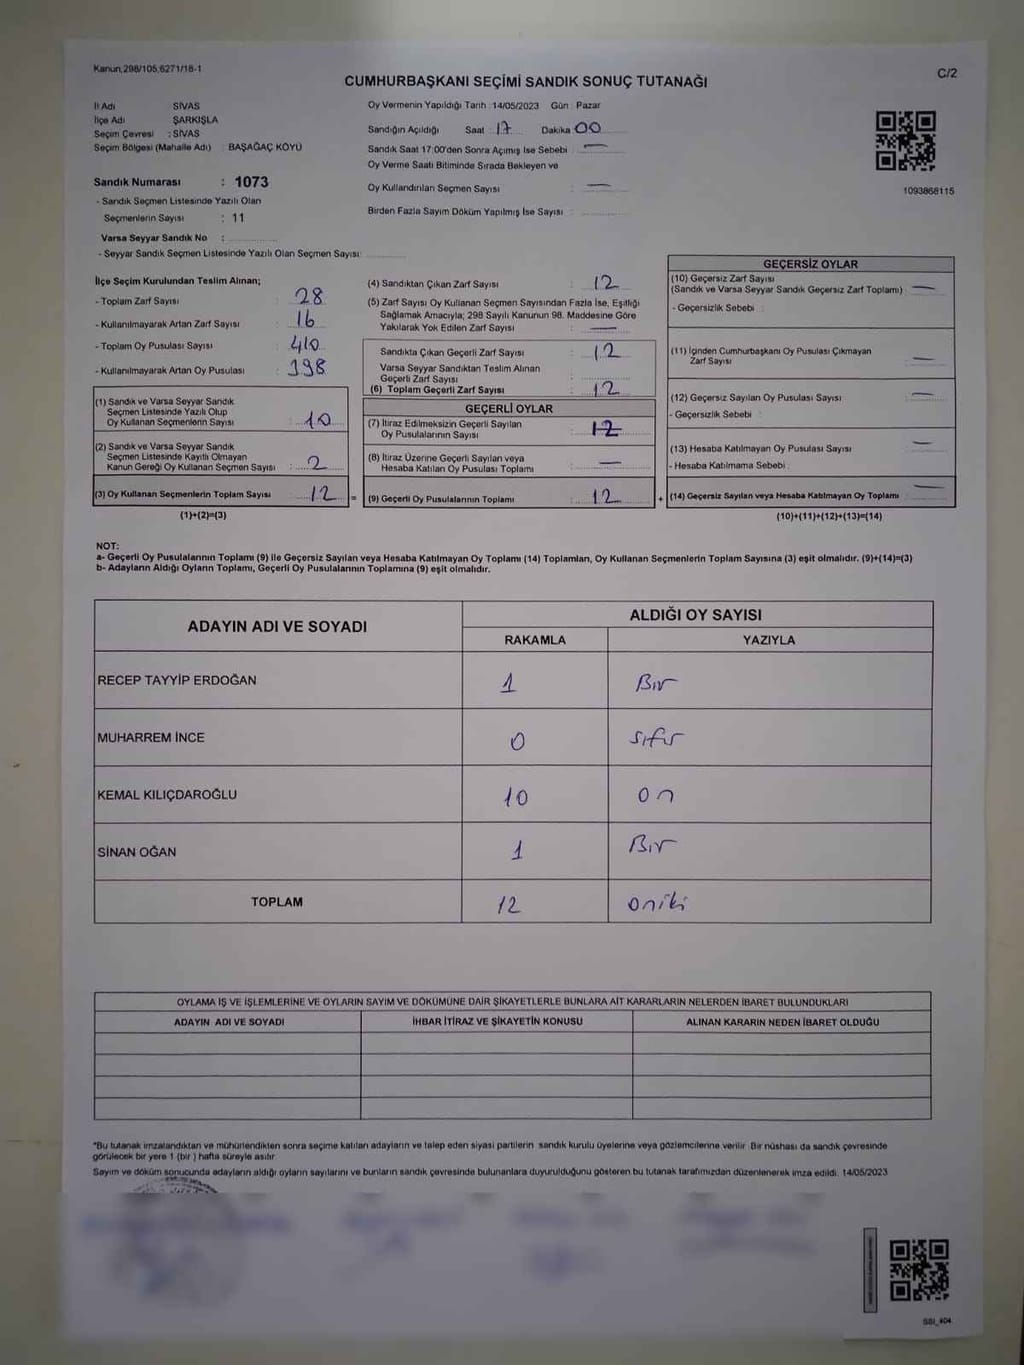 Kanun,298/105,6271/18-1
C/2
CUMHURBAŞKANI SEÇİMİ SANDIK SONUÇ TUTANAĞI
İl Adı SİVAS
İlçe Adı ŞARKIŞLA
Seçim Çevresi : SİVAS
Seçim Bölgesi (Mahalle Adı) : BAŞAĞAÇ KÖYÜ
Sandık Numarası : 1073
- Sandık Seçmen Listesinde Yazılı Olan
Seçmenlerin Sayısı : 11
Varsa Seyyar Sandık No :
- Seyyar Sandık Seçmen Listesinde Yazılı Olan Seçmen Sayısı:
Oy Vermenin Yapıldığı Tarih : 14/05/2023 Gün : Pazar
Sandığın Açıldığı Saat : 17 Dakika : 00
Sandık Saat 17:00'den Sonra Açımış İse Sebebi : —
Oy Verme Saati Bitiminde Sırada Bekleyen ve
Oy Kullandırılan Seçmen Sayısı : —
Birden Fazla Sayım Döküm Yapılmış İse Sayısı :
1093868115
İlçe Seçim Kurulundan Teslim Alınan;
- Toplam Zarf Sayısı : 28
- Kullanılmayarak Artan Zarf Sayısı : 16
- Toplam Oy Pusulası Sayısı : 410
- Kullanılmayarak Artan Oy Pusulası : 398
(1) Sandık ve Varsa Seyyar Sandık
Seçmen Listesinde Yazılı Olup
Oy Kullanan Seçmenlerin Sayısı : 10
(2) Sandık ve Varsa Seyyar Sandık
Seçmen Listesinde Kayıtlı Olmayan
Kanun Gereği Oy Kullanan Seçmen Sayısı : 2
(3) Oy Kullanan Seçmenlerin Toplam Sayısı : 12 =
(1)+(2)=(3)
(4) Sandıktan Çıkan Zarf Sayısı : 12
(5) Zarf Sayısı Oy Kullanan Seçmen Sayısından Fazla İse, Eşitliği
Sağlamak Amacıyla; 298 Sayılı Kanunun 98. Maddesine Göre
Yakılarak Yok Edilen Zarf Sayısı : —
Sandıkta Çıkan Geçerli Zarf Sayısı : 12
Varsa Seyyar Sandıktan Teslim Alınan
Geçerli Zarf Sayısı :
(6) Toplam Geçerli Zarf Sayısı : 12
GEÇERLİ OYLAR
(7) İtiraz Edilmeksizin Geçerli Sayılan
Oy Pusulalarının Sayısı : 12
(8) İtiraz Üzerine Geçerli Sayılan veya
Hesaba Katılan Oy Pusulası Toplamı : —
(9) Geçerli Oy Pusulalarının Toplamı : 12 +
GEÇERSİZ OYLAR
(10) Geçersiz Zarf Sayısı
(Sandık ve Varsa Seyyar Sandık Geçersiz Zarf Toplamı) : —
- Geçersizlik Sebebi :
(11) İçinden Cumhurbaşkanı Oy Pusulası Çıkmayan
Zarf Sayısı : —
(12) Geçersiz Sayılan Oy Pusulası Sayısı : —
- Geçersizlik Sebebi :
(13) Hesaba Katılmayan Oy Pusulası Sayısı : —
- Hesaba Katılmama Sebebi :
(14) Geçersiz Sayılan veya Hesaba Katılmayan Oy Toplamı : —
(10)+(11)+(12)+(13)=(14)
NOT:
a- Geçerli Oy Pusulalarının Toplamı (9) ile Geçersiz Sayılan veya Hesaba Katılmayan Oy Toplamı (14) Toplamları, Oy Kullanan Seçmenlerin Toplam Sayısına (3) eşit olmalıdır. (9)+(14)=(3)
b- Adayların Aldığı Oyların Toplamı, Geçerli Oy Pusulalarının Toplamına (9) eşit olmalıdır.
ADAYIN ADI VE SOYADI ALDIĞI OY SAYISI
RAKAMLA YAZIYLA
RECEP TAYYİP ERDOĞAN 1 Bir
MUHARREM İNCE 0 sıfır
KEMAL KILIÇDAROĞLU 10 on
SİNAN OĞAN 1 Bir
TOPLAM 12 oniki
OYLAMA İŞ VE İŞLEMLERİNE VE OYLARIN SAYIM VE DÖKÜMÜNE DAİR ŞİKAYETLERLE BUNLARA AİT KARARLARIN NELERDEN İBARET BULUNDUKLARI
ADAYIN ADI VE SOYADI İHBAR İTİRAZ VE ŞİKAYETİN KONUSU ALINAN KARARIN NEDEN İBARET OLDUĞU
*Bu tutanak imzalandıktan ve mühürlendikten sonra seçime katılan adayların ve talep eden siyasi partilerin sandık kurulu üyelerine veya gözlemcilerine verilir. Bir nüshası da sandık çevresinde
görülecek bir yere 1 (bir) hafta süreyle asılır.
Sayım ve döküm sonucunda adayların aldığı oyların sayılarını ve bunların sandık çevresinde bulunanlara duyurulduğunu gösteren bu tutanak tarafımızdan düzenlenerek imza edildi. 14/05/2023
SSI_404